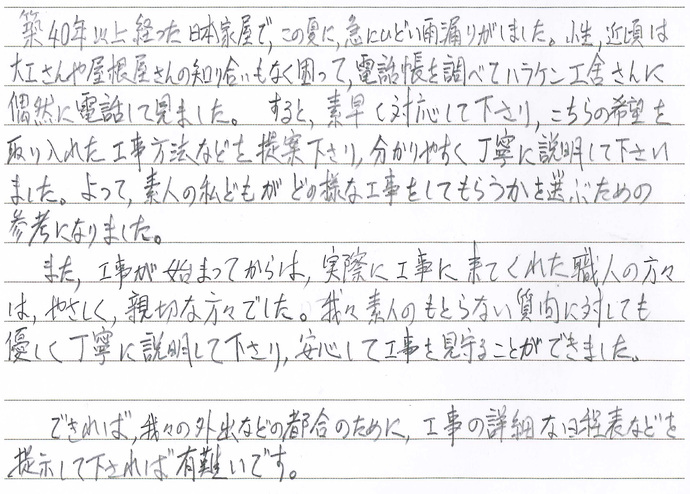 築40年以上経った日本家屋で,この夏に,急にひどい雨漏りがしました。小生,近頃は
大工さんや屋根屋さんの知り合いもなく困って,電話帳を調べてハラケン工舎さんに
偶然に電話して見ました。 すると,素早く対応して下さり,こちらの希望を
取り入れた工事方法などを提案下さり,分かりやすく丁寧に説明して下さい
ました。よって,素人の私どもがどの様な工事をしてもらうかを選ぶための
参考になりました。
また,工事が始まってからは,実際に工事に来てくれた職人の方々
は,やさしく,親切な方々でした。我々素人のもとらない質問に対しても
優しく丁寧に説明して下さり,安心して工事を見守ることができました。
できれば,我々の外出などの都合のために,工事の詳細な日程表などを
提示して下されば有難いです。